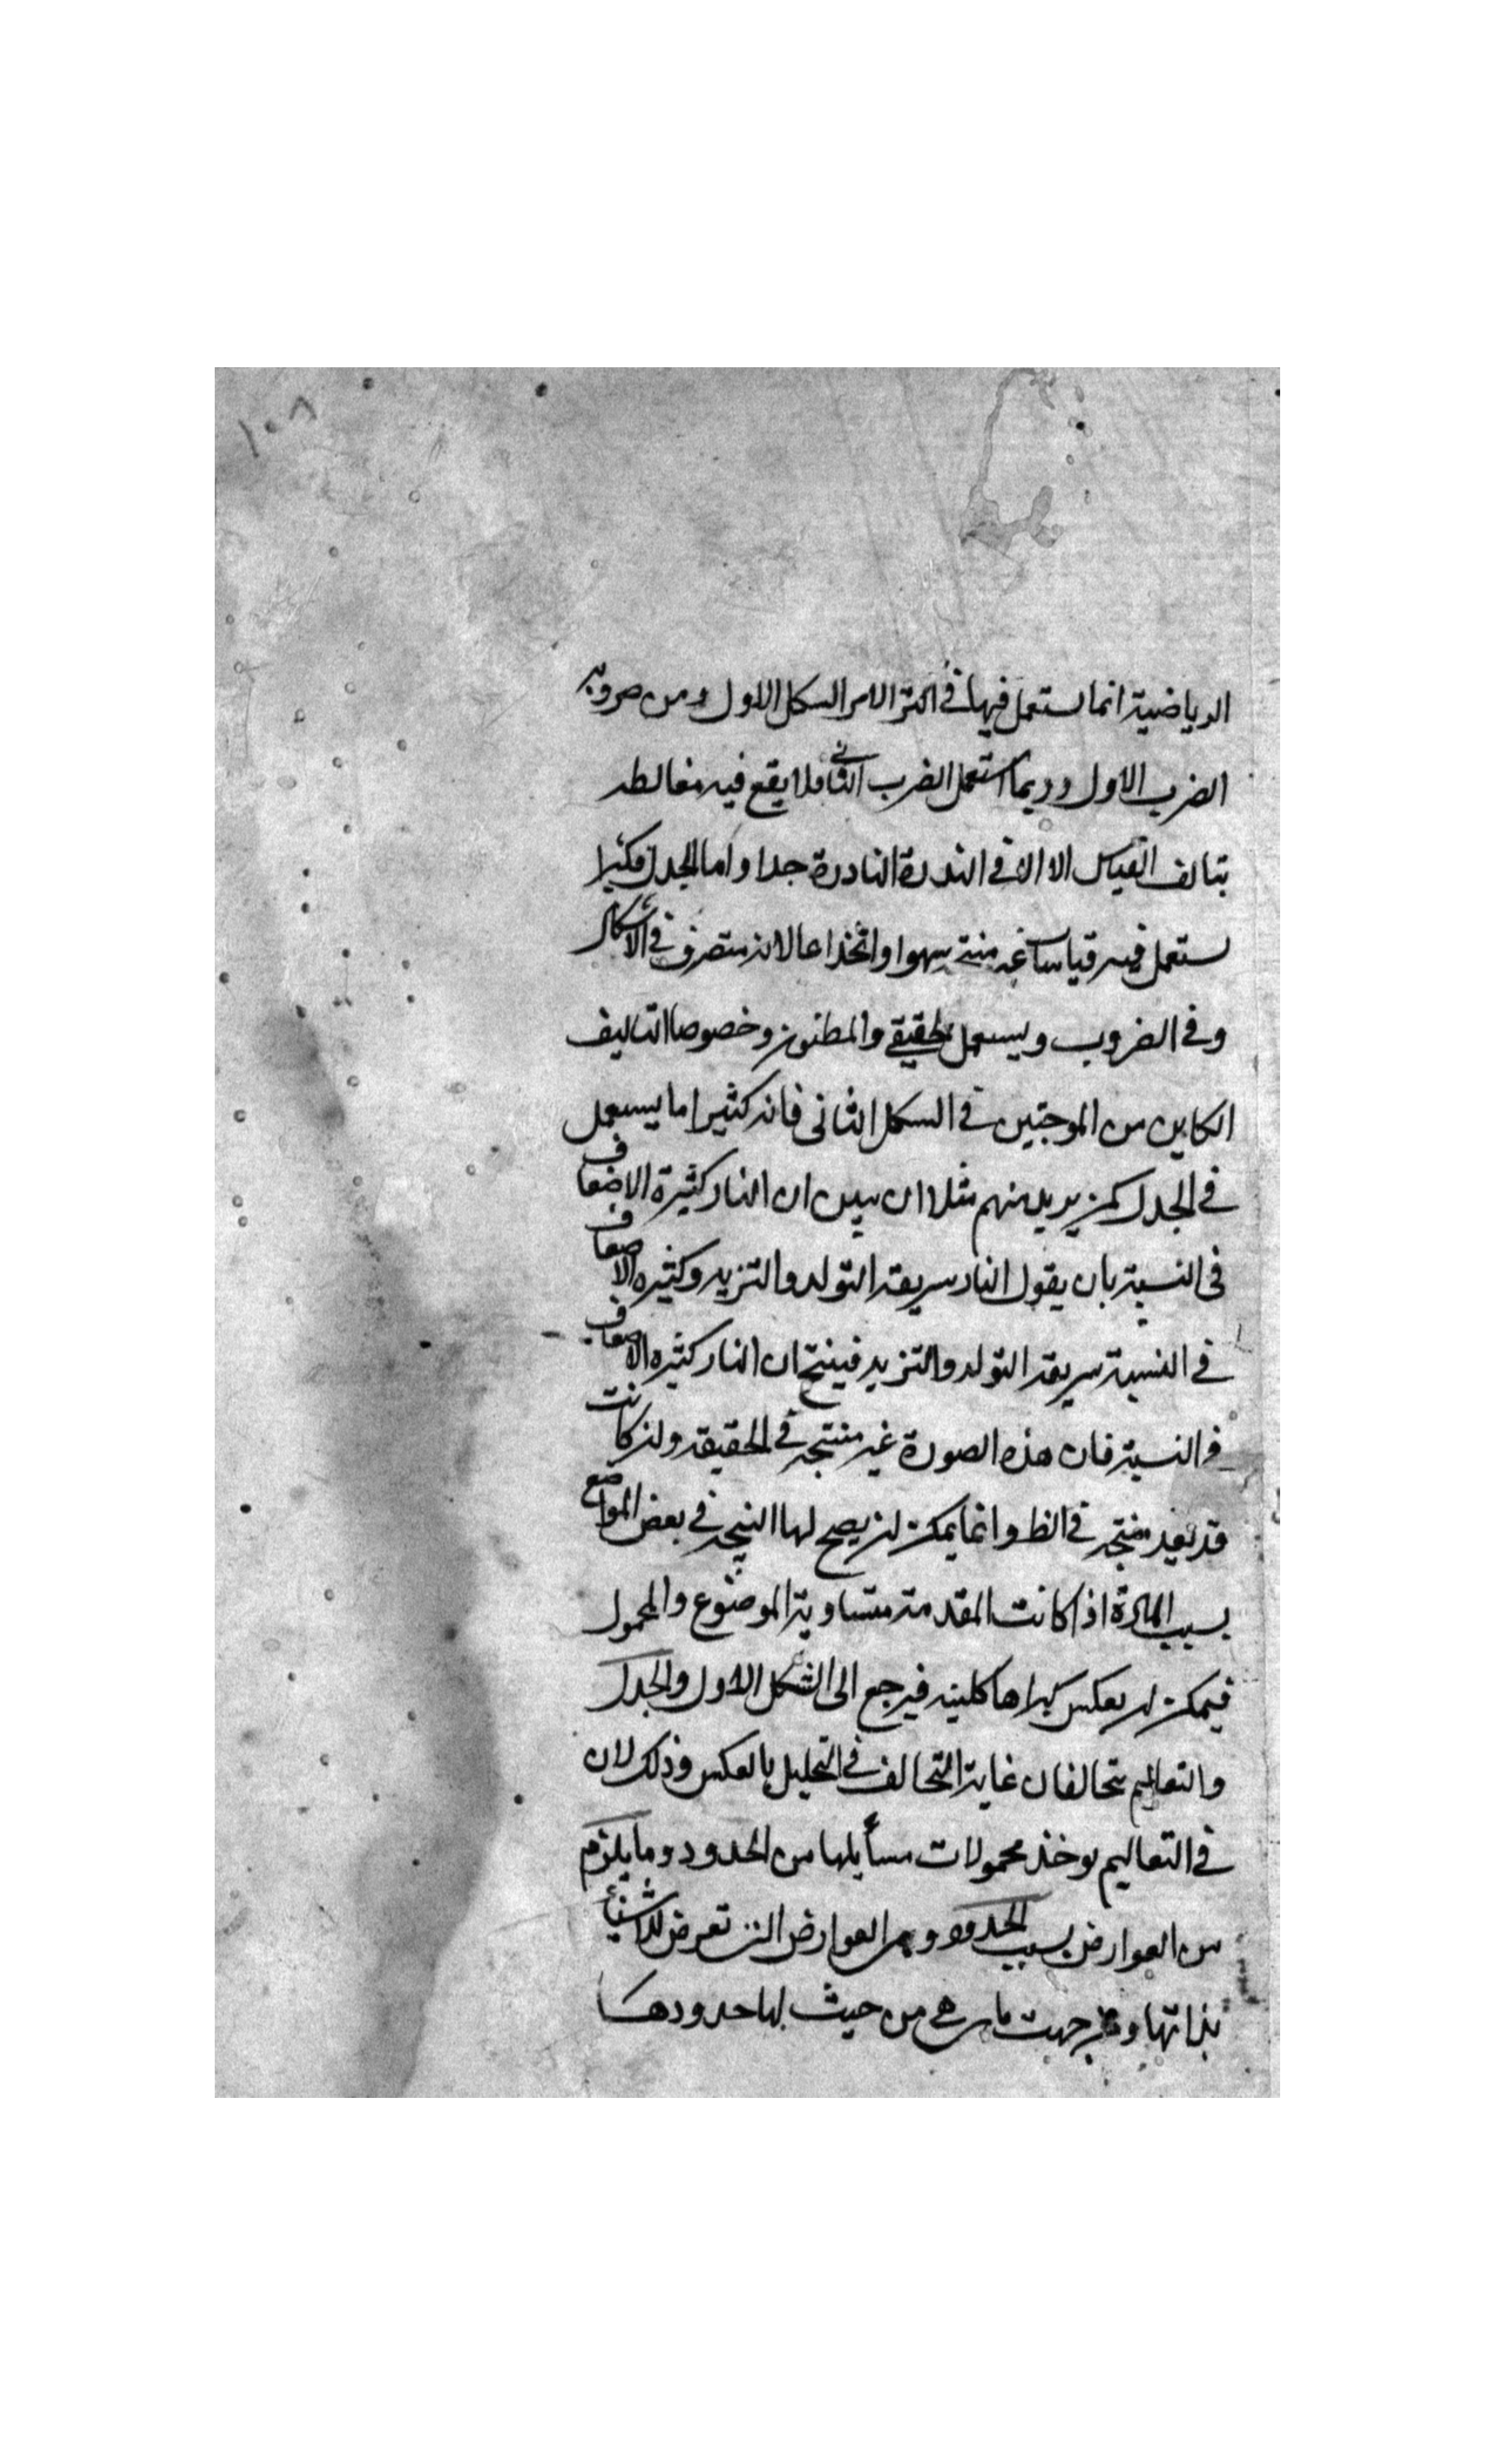 ١٠٨
الرياضية انما يستعمل فيها في اكثر الامر الشكل الاول ومن ضروبه
الضرب الاول وربما استعمل الضرب الثاني فلا يقع فيه مغالطه
بتالف القياس الا الا في الندرة النادرة جدا واما الجدل فكثيرا
يستعمل فيه قياسا غير منتج سهوا وانخداعا لانه متصرف في الاشكال
وفي الضروب ويستعمل الحقيقي والمظنون وخصوصا التاليف
الكاين من الموجبتين في الشكل الثاني فانه كثيرا ما يستعمل
في الجدل كمن يريد منهم مثلا ان يبين ان النار كثيرة الاضعاف
في النسبة بان يقول النار سريعة التولد والتزيد وكثيره الاضعاف
في النسبة سريعة التولد والتزيد فينتج ان النار كثيره الاضعاف
في النسبة فان هذه الصورة غير منتجه في الحقيقه ولن كانت
قد تعد منتجه في الظ وانما يمكن لن يصح لها النتيجه في بعض المواضع
بسبب المادة اذا كانت المقدمة متساوية الموضوع والمحمول
فيمكن ان يعكس كبراها كلية فيرجع الى الشكل الاول والجدل
والتعاليم تخالفان غاية التخالف في التحليل بالعكس وذلك لان
في التعاليم يوخذ محمولات مسأيلها من الحدود وما يلزم
من العوارض بسبب الحدود وهي العوارض التي تعرض للاشياء
بذاتها ومن جهت ما هي من حيث لها حدودها